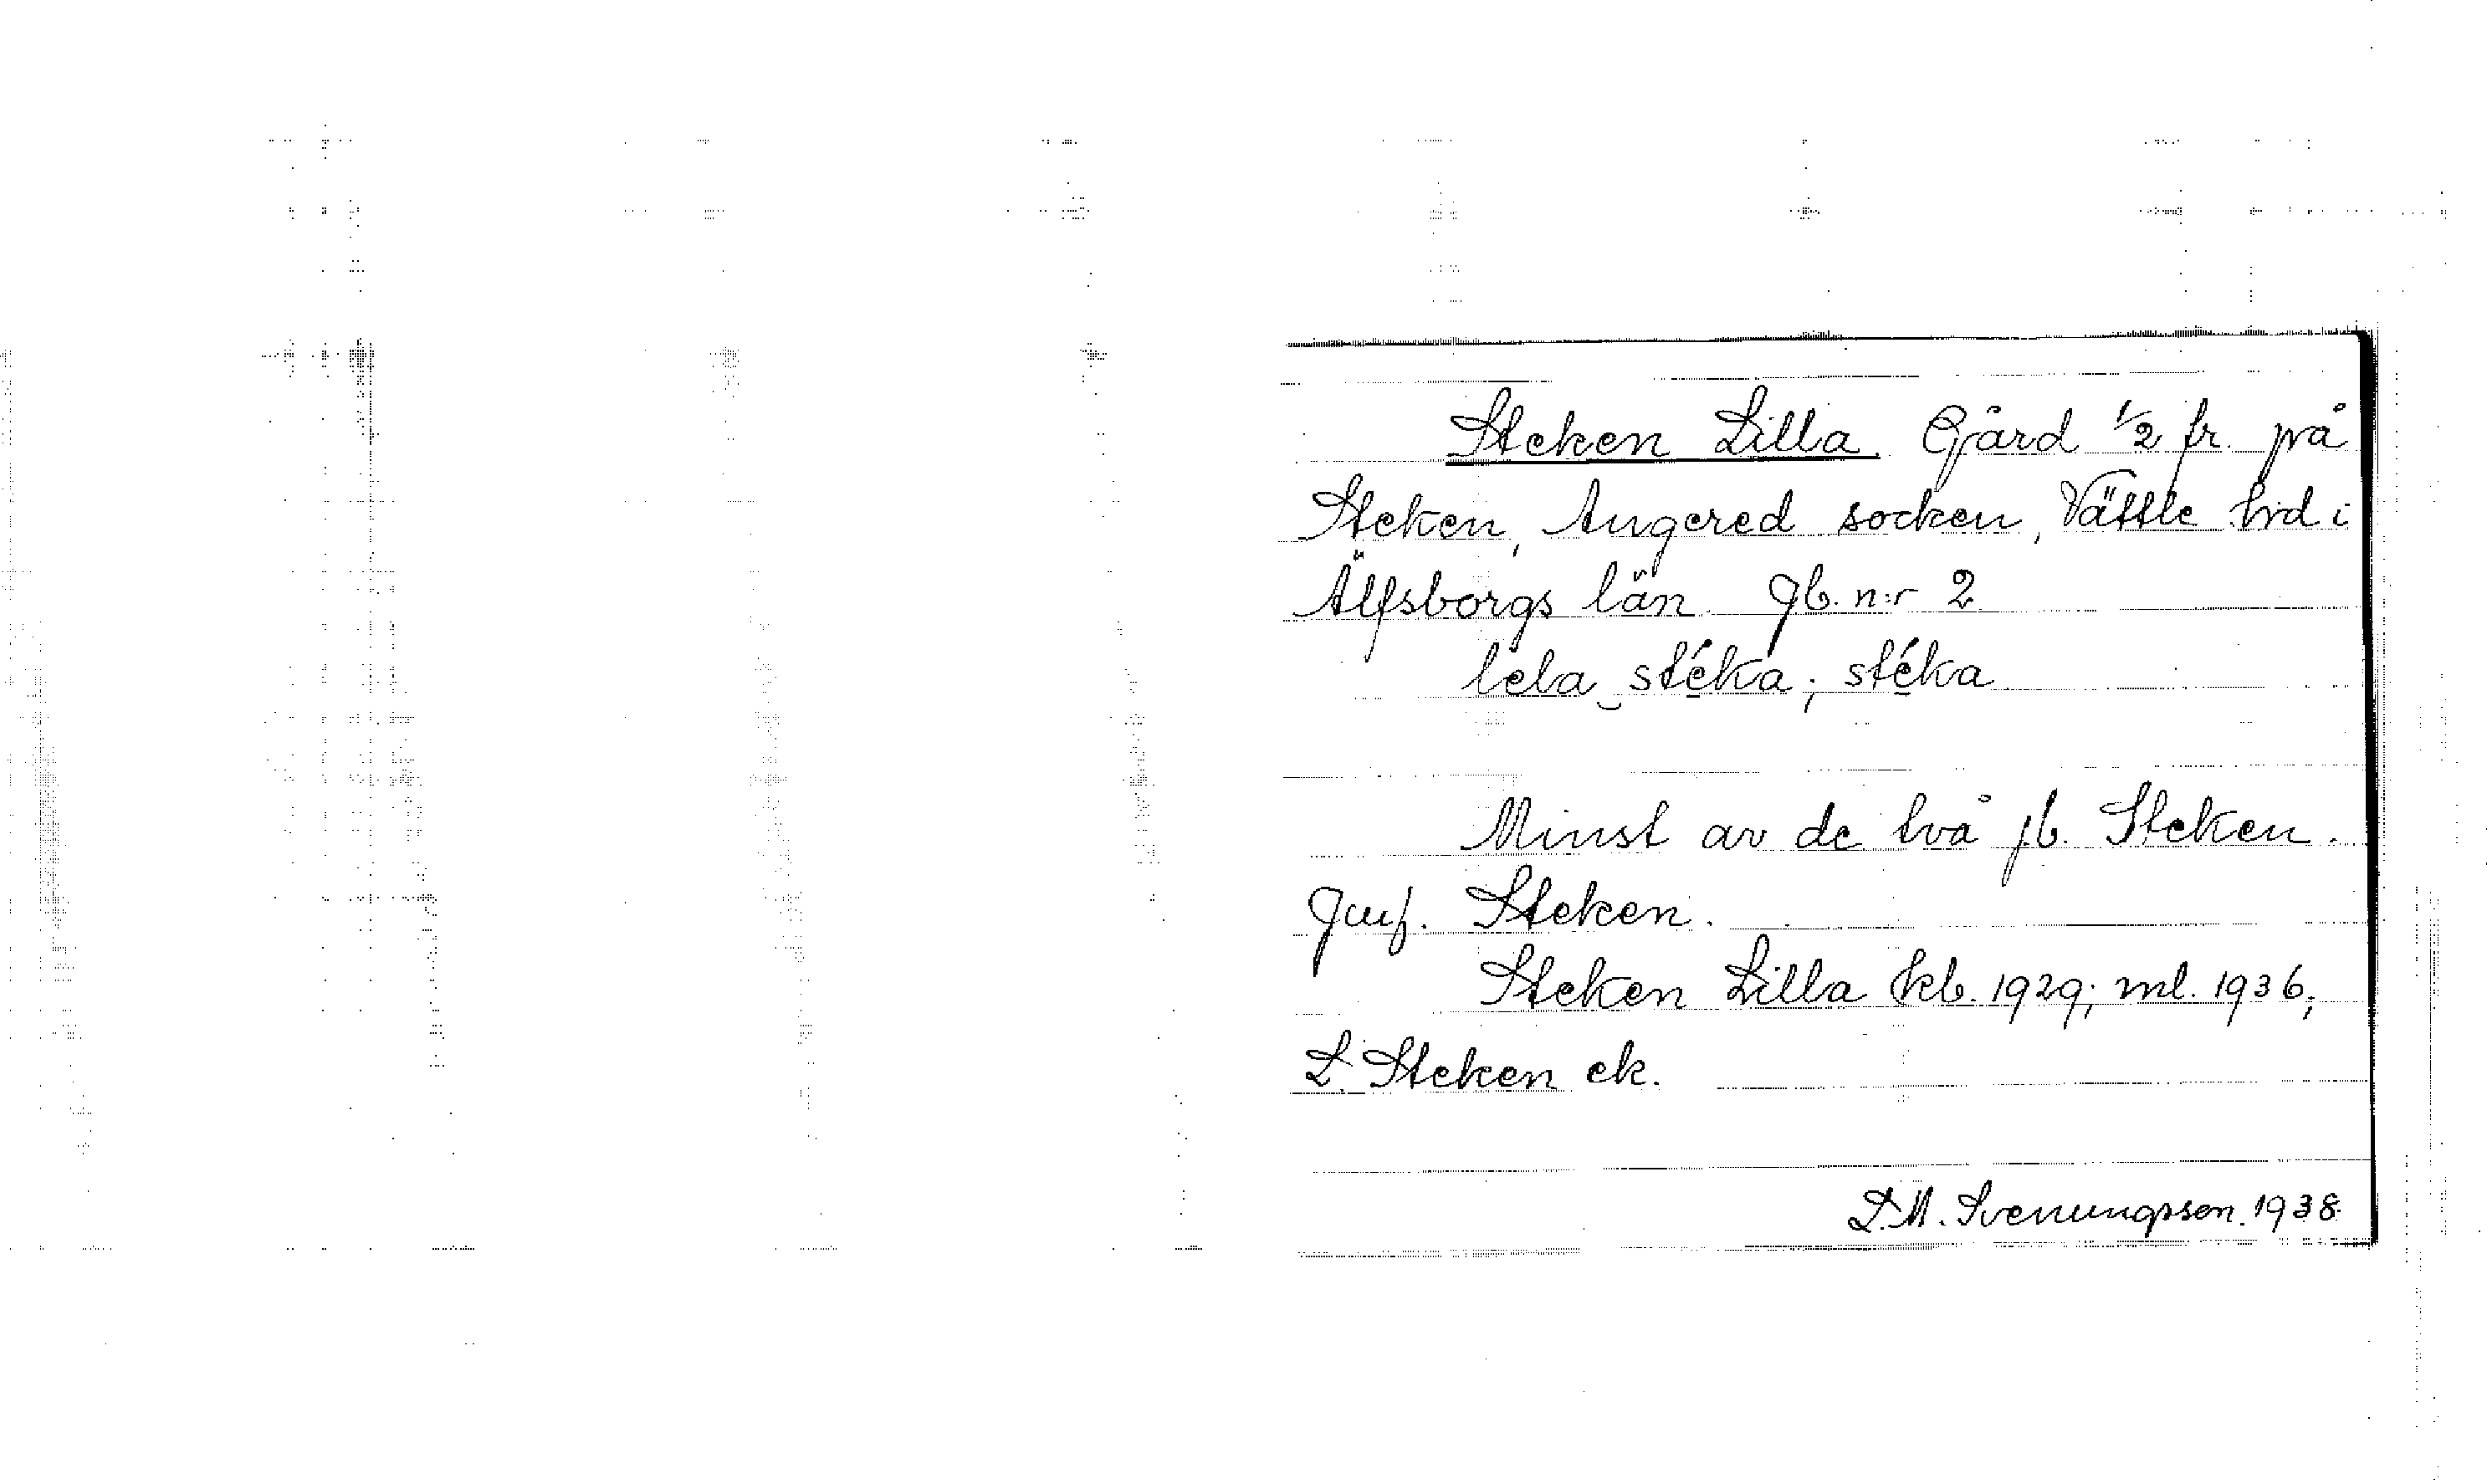 Steken Lilla. Gård 1/2 fr. på
Steken, Angered socken, Vättle hrd i
Älfsborgs län. Jb. n:r 2
lela stéka; stéka
Minst av de två jb. Steken.
Jmf. Steken.
Steken Lilla kb. 1929; ml. 1936;
L. Steken ek.
L.M. Svenungsson. 1938.